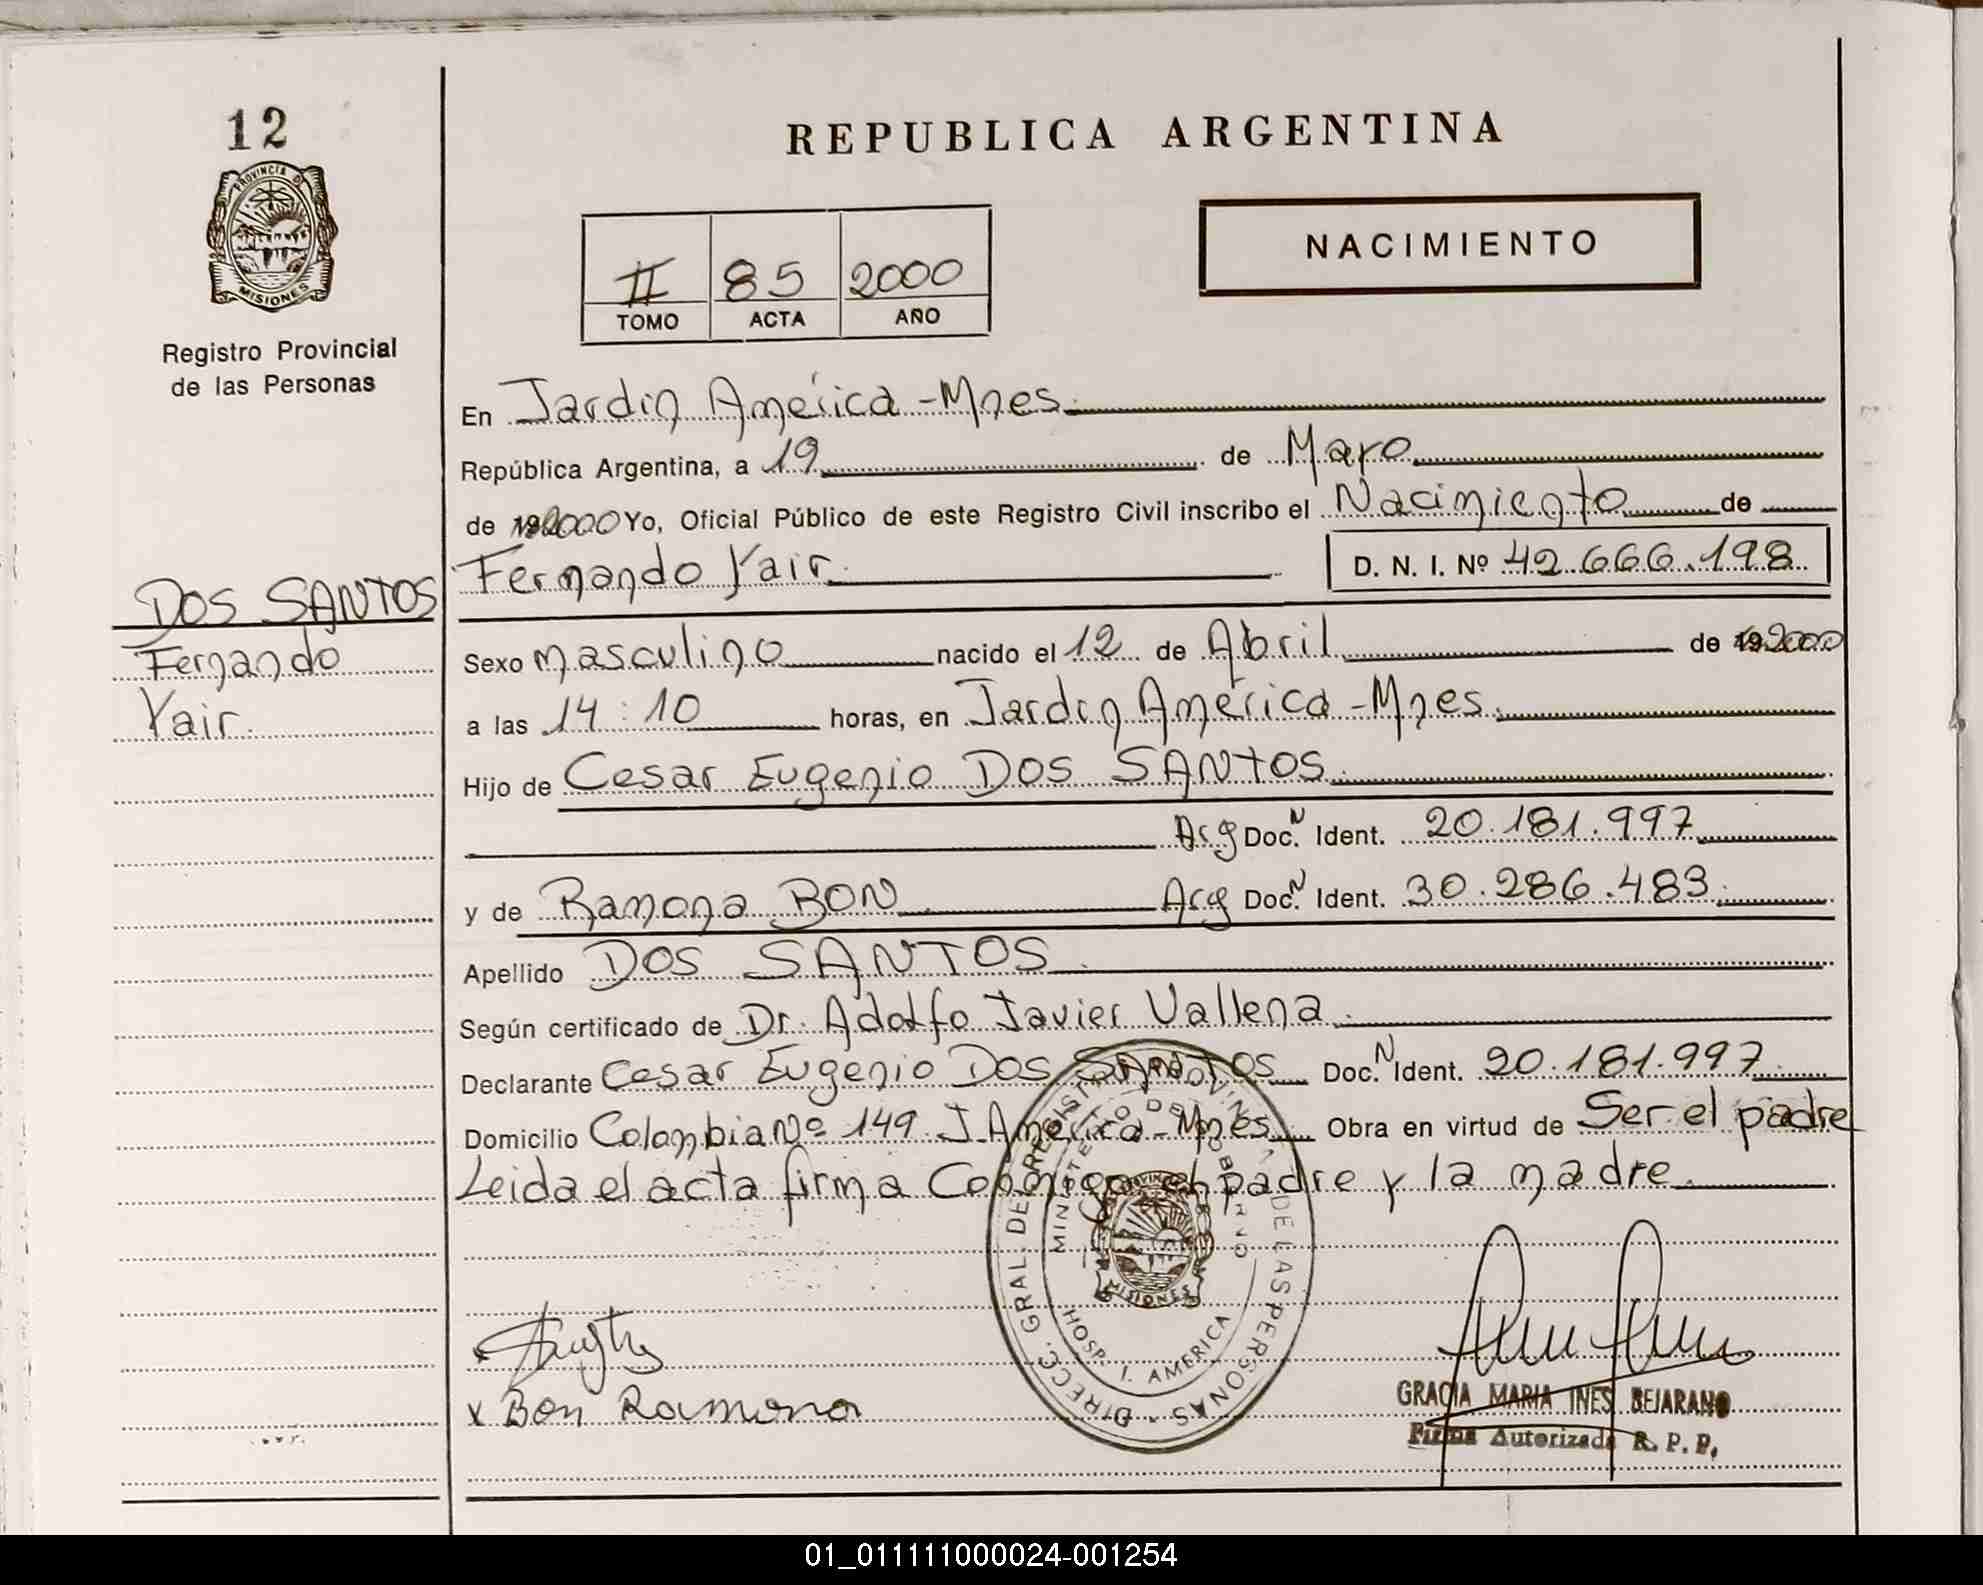 12
PROVINCIA DE
MISIONES
Registro Provincial
de las Personas
DOS SANTOS
Fernando
Yair.
REPUBLICA ARGENTINA
II 85 2000
TOMO ACTA AÑO
NACIMIENTO
En Jardin América - Mnes.
República Argentina, a 19 de Mayo
de 2000 Yo, Oficial Público de este Registro Civil inscribo el Nacimiento de
Fernando Yair. D. N. I. Nº 42.666.198
Sexo masculino nacido el 12 de Abril de 2000
a las 14:10 horas, en Jardin América - Mnes.
Hijo de Cesar Eugenio DOS SANTOS.
Arg Doc. N Ident. 20.181.997
y de Ramona BON Arg Doc. N Ident. 30.286.483.
Apellido DOS SANTOS.
Según certificado de Dr. Adolfo Javier Vallena.
Declarante Cesar Eugenio DOS SANTOS Doc. N Ident. 20.181.997
Domicilio Colombia Nº 149 J. América - Mnes Obra en virtud de Ser el padre
Leida el acta firma Conmigo el padre y la madre.
DIRECC. GRAL. DE REGISTRO PROVINCIAL DE LAS PERSONAS
MINISTERIO DE GOBIERNO
MISIONES
HOSP. J. AMERICA
x Bon Ramona
GRACIA MARIA INES BEJARANO
Firma Autorizada R. P. P.
01_011111000024-001254